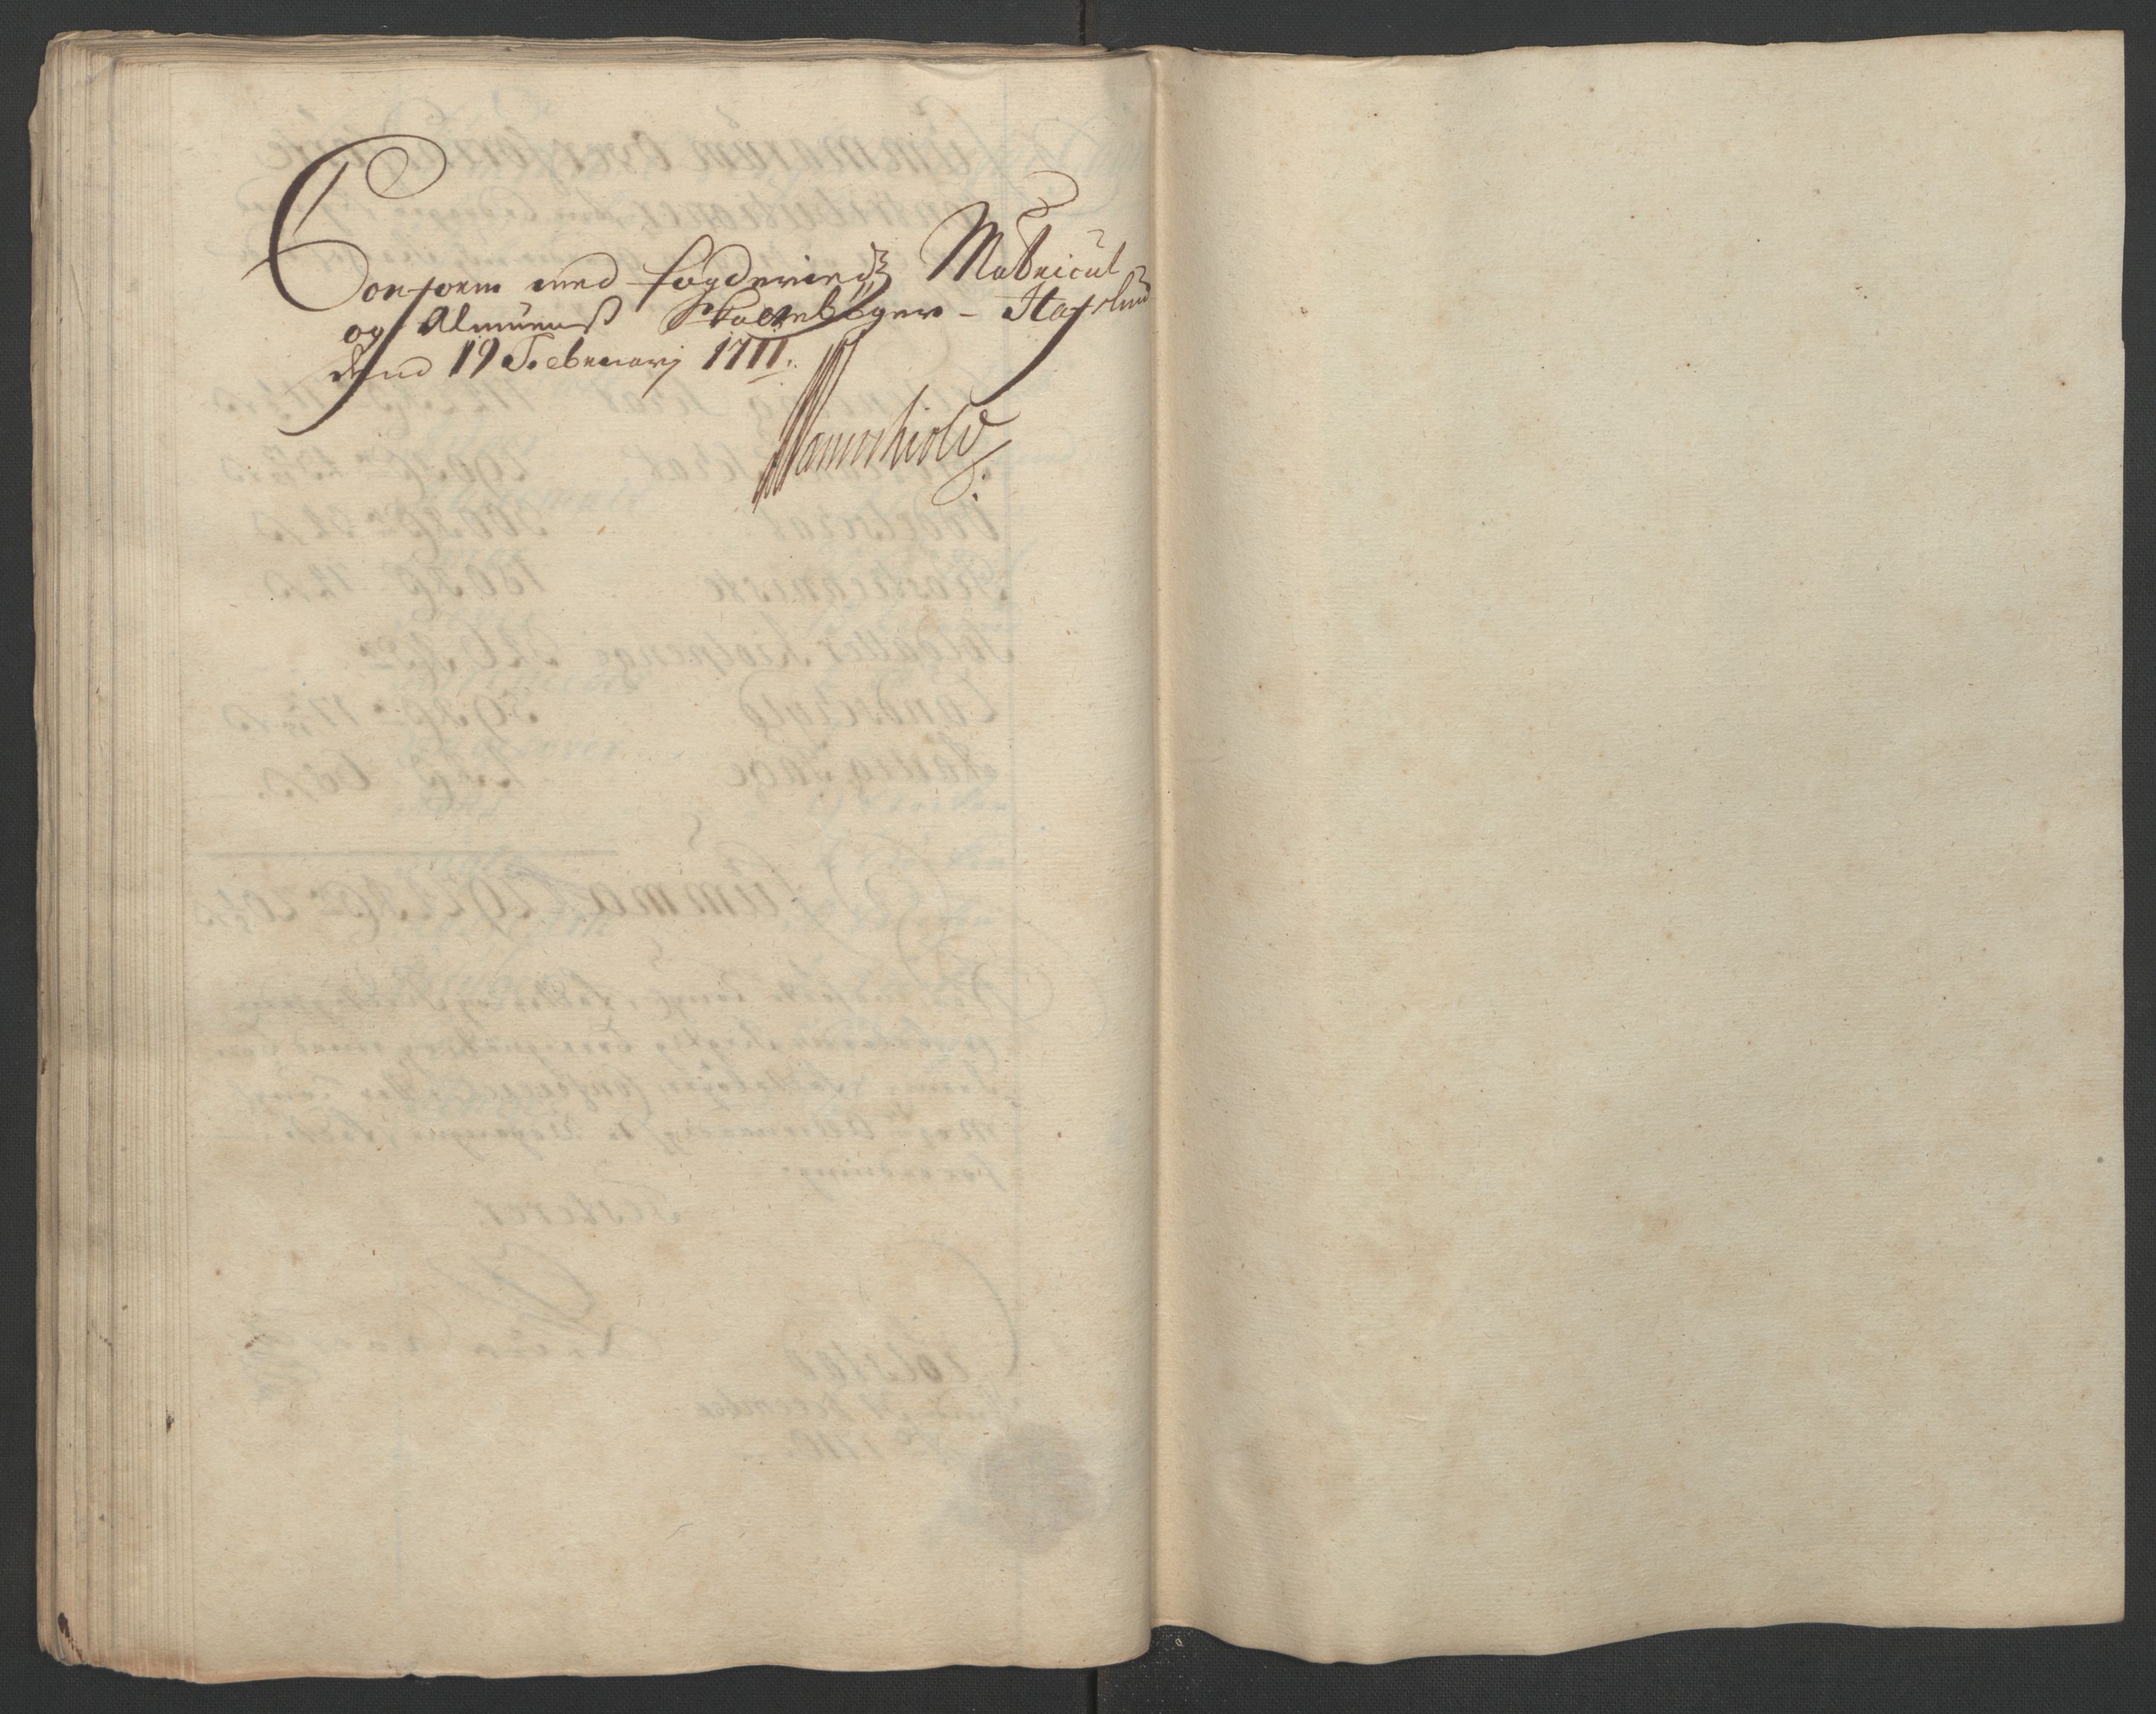 Conform med fogderiedz Matricul
og Almuens Skattebøger - Hafslund
dend 19 Februarij 1711.
Wernerskiold